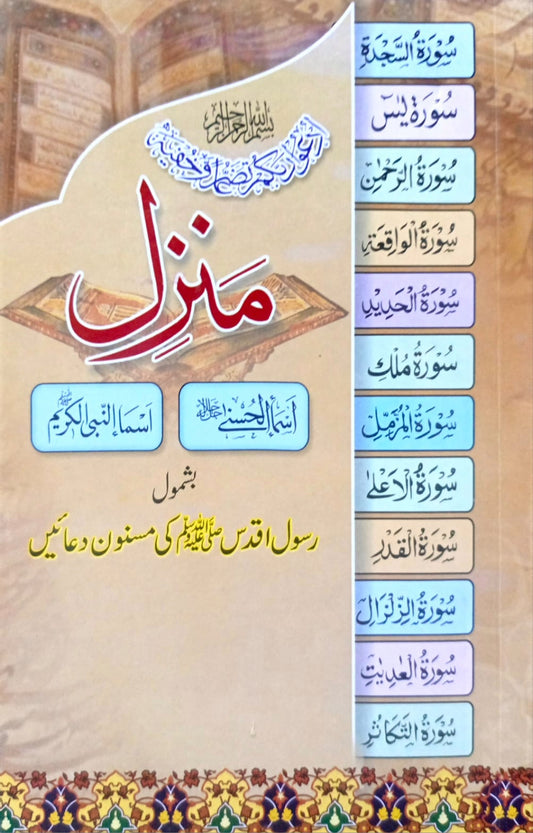 بسم اللہ الرحمن الرحیم
ادعوا ربکم تضرعا وخفیة
منزل
اسماء الحسنٰے جل جلالہ
اسماء النبی الکریم ﷺ
بشمول
رسول اقدس ﷺ کی مسنون دعائیں
سُوْرَۃُ السَّجْدَۃِ
سُوْرَۃ یٰسٓ
سُوْرَۃُ الرَّحْمٰنِ
سُوْرَۃُ الْوَاقِعَۃِ
سُوْرَۃُ الْحَدِیْدِ
سُوْرَۃُ مُلْکِ
سُوْرَۃُ الْمُزَّمِّلِ
سُوْرَۃُ الْاَعْلٰی
سُوْرَۃُ الْقَدْرِ
سُوْرَۃُ الزِّلْزَالِ
سُوْرَۃُ الْعٰدِیٰتِ
سُوْرَۃُ التَّکَاثُرِ